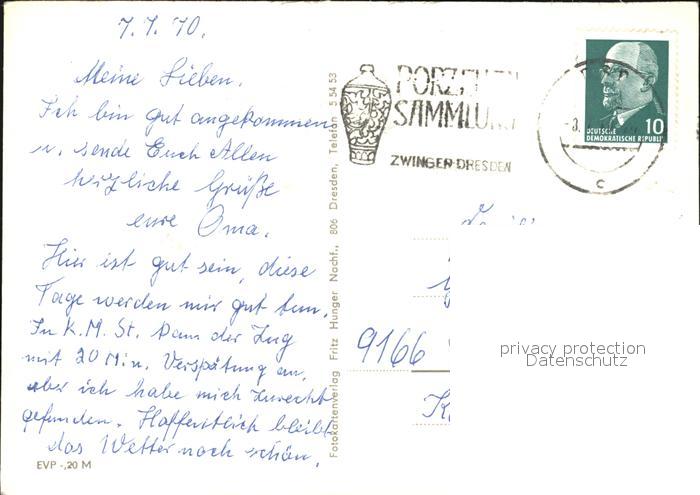 7.7.70.
Meine Lieben.
Ich bin gut angekommen
u. sende Euch Allen
herzliche Grüße
eure Oma.
Hier ist gut sein, diese
Tage werden mir gut tun.
In K.M. St. kam der Zug
mit 20 Min. Verspätung an,
aber ich habe mich zurecht
gefunden. Hoffentlich bleibt
das Wetter noch schön.
EVP -,20 M
Fotokartenverlag Fritz Hunger Nachf., 806 Dresden, Telefon 5 54 53
SAMMLUNG
ZWINGER-DRESDEN
C
10
DEUTSCHE
DEMOKRATISCHE REPUBLIK
9166
privacy protection
Datenschutz